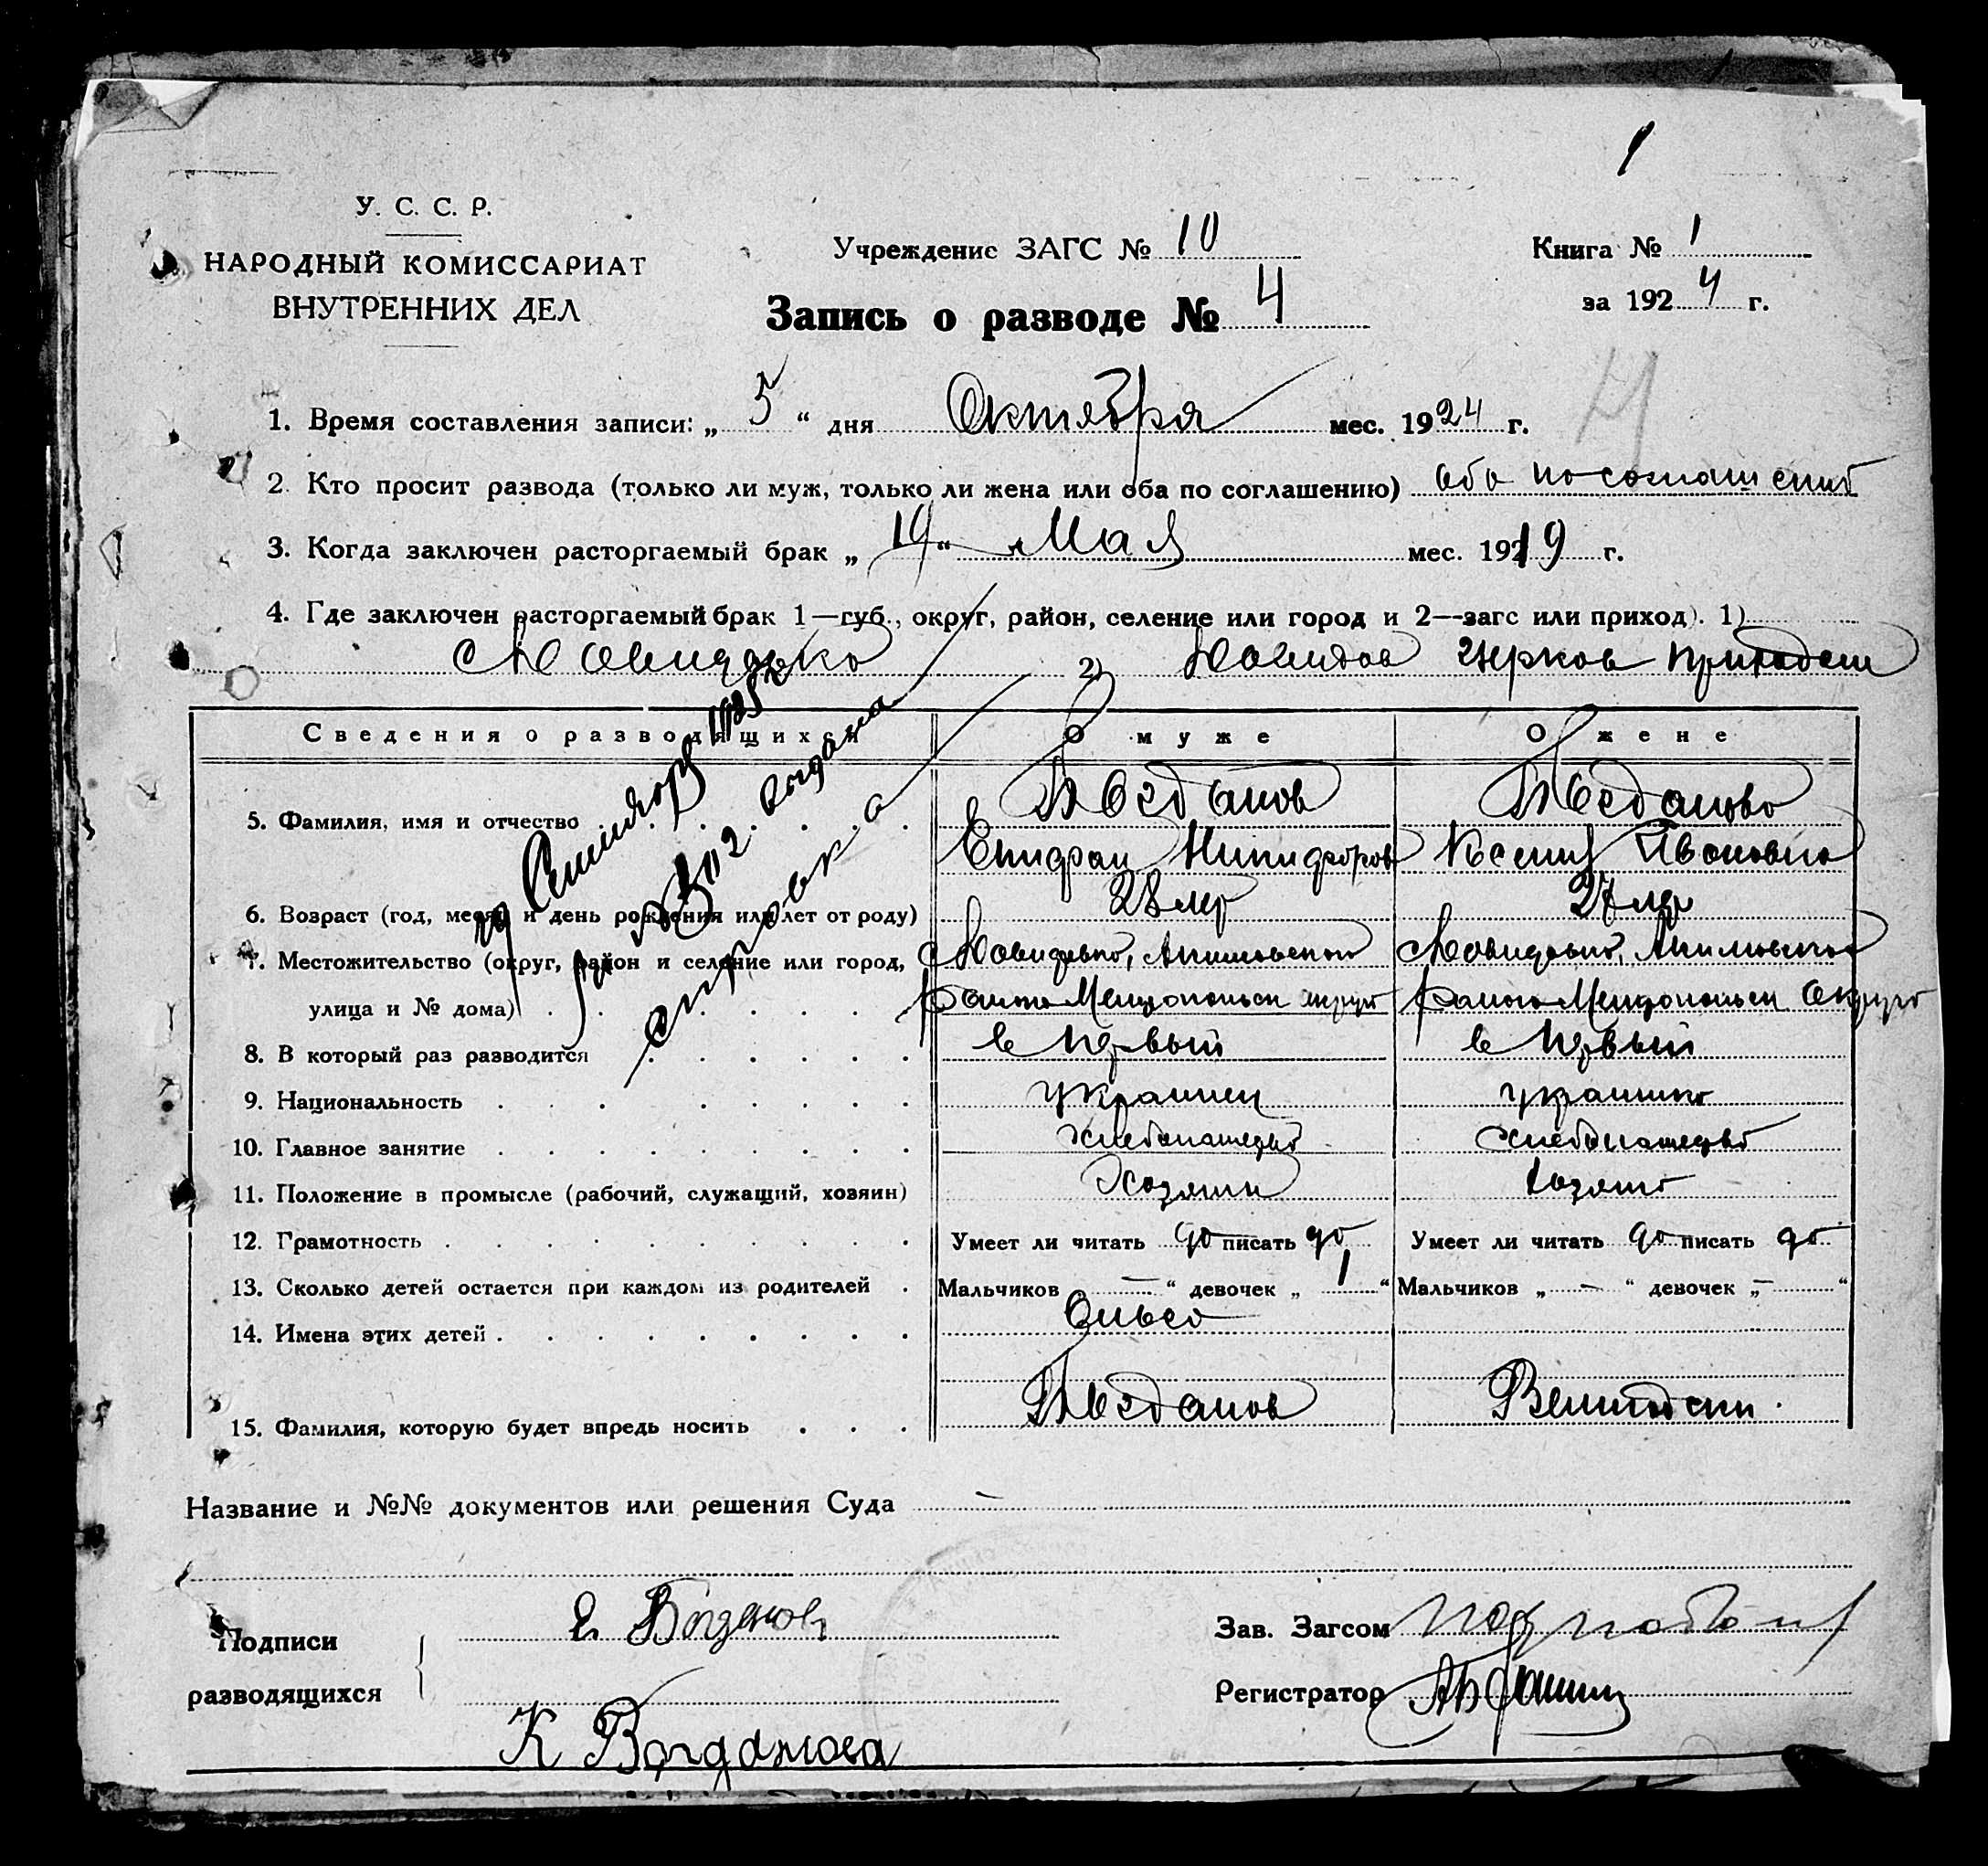 1
У. С. С. Р.
НАРОДНЫЙ КОМИССАРИАТ
ВНУТРЕННИХ ДЕЛ
Учреждение ЗАГС № 10
Запись о разводе № 4
Книга № 1
за 1924 г.
4
1. Время составления записи: „5“ дня Октября мес. 1924 г.
2. Кто просит развода (только ли муж, только ли жена или оба по соглашению) оба по
3. Когда заключен расторгаемый брак „14“ Мая мес. 1919 г.
4. Где заключен расторгаемый брак 1—губ., округ, район, селение или город и 2—загс или приход). 1)
2)
Сведения о разводящихся О муже О жене
5. Фамилия, имя и отчество Богданов Богданова
Никифоров Ксения Ивановна
6. Возраст (год, месяц и день рождения или лет от роду) 28 лет 27 лет
7. Местожительство (округ, район и селение или город,
улица и № дома) района района
8. В который раз разводится в первый в первый
9. Национальность украинец украинка
10. Главное занятие
11. Положение в промысле (рабочий, служащий, хозяин) Хозяин
12. Грамотность Умеет ли читать да писать да Умеет ли читать да писать да
13. Сколько детей остается при каждом из родителей Мальчиков — “ девочек „ 1 “ Мальчиков „ — “ девочек „ — “
14. Имена этих детей Ольга
15. Фамилия, которую будет впредь носить Богданов
выдана
Название и №№ документов или решения Суда —
Подписи
разводящихся
Е. Богданов
К Богданова
Зав. Загсом
Регистратор